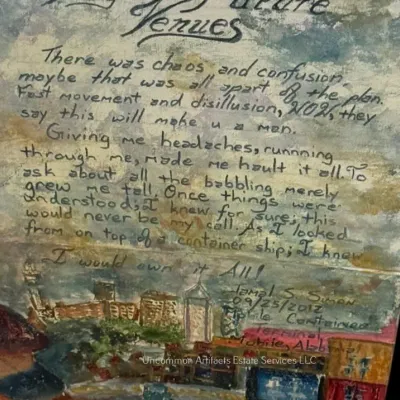 Venues
There was chaos and confusion
maybe that was all apart of the plan.
Fast movement and disillusion, they
say this will make u a man.
Giving me headaches, runnning
through me, made me hault it all. To
ask about all the babbling merely
grew me tall. Once things were
understood; I knew for sure; this
would never be my call. As I looked
from on top of a container ship; I knew
I would own it All!
Jamal Simon
09/25/2012
Mobile Container
Terminal
Mobile, Ala
Uncommon Artifacts Estate Services LLC